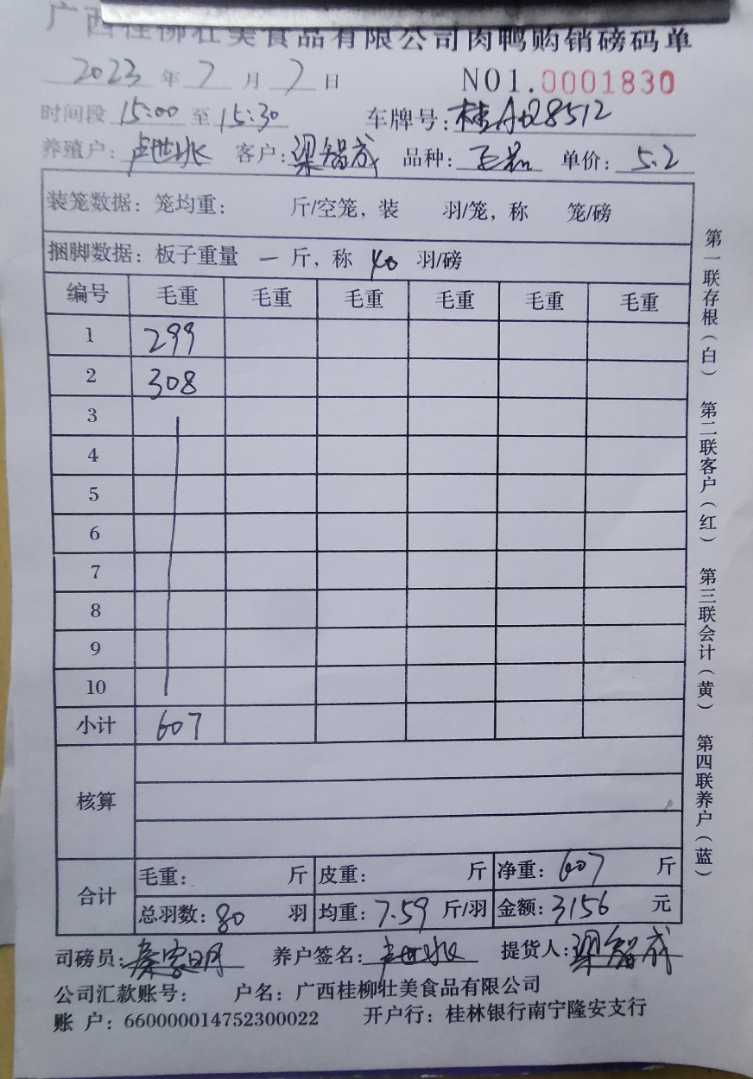 广西桂柳壮美食品有限公司肉鸭购销磅码单
2023 年 7 月 7 日 NO1.0001830
时间段 15:00 至 15:30 车牌号: 桂A028512
养殖户: 卢世冰 客户: 梁智成 品种: 单价: 5.2
装笼数据: 笼均重: 斤/空笼, 装 羽/笼, 称 笼/磅
捆脚数据: 板子重量 一 斤, 称 40 羽/磅
编号 毛重 毛重 毛重 毛重 毛重 毛重
1 299
2 308
3
4
5
6
7
8
9
10
小计 607
核算
合计 毛重: 斤 皮重: 斤 净重: 607 斤
总羽数: 80 羽 均重: 7.59 斤/羽 金额: 3156 元
司磅员: 养户签名: 卢世冰 提货人: 梁智成
公司汇款账号: 户名: 广西桂柳壮美食品有限公司
账 户: 660000014752300022 开户行: 桂林银行南宁隆安支行
第一联存根(白) 第二联客户(红) 第三联会计(黄) 第四联养户(蓝)